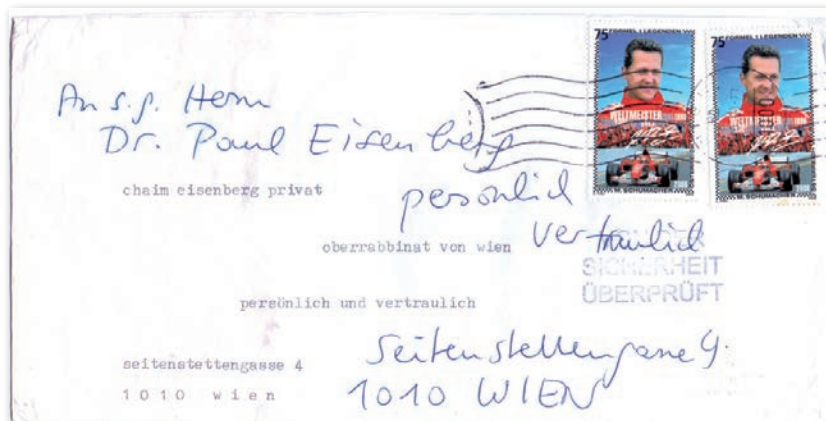 75 FORMEL 1 LEGENDEN
WELTMEISTER
M. SCHUMACHER
75 FORMEL 1 LEGENDEN
WELTMEISTER
M. SCHUMACHER
An s.g. Herrn
Dr. Paul Eisenberg
chaim eisenberg privat
persönlich
vertraulich
oberrabbinat von wien
SICHERHEIT
ÜBERPRÜFT
persönlich und vertraulich
Seitenstettengasse 4.
seitenstettengasse 4
1010 WIEN
1010 wien